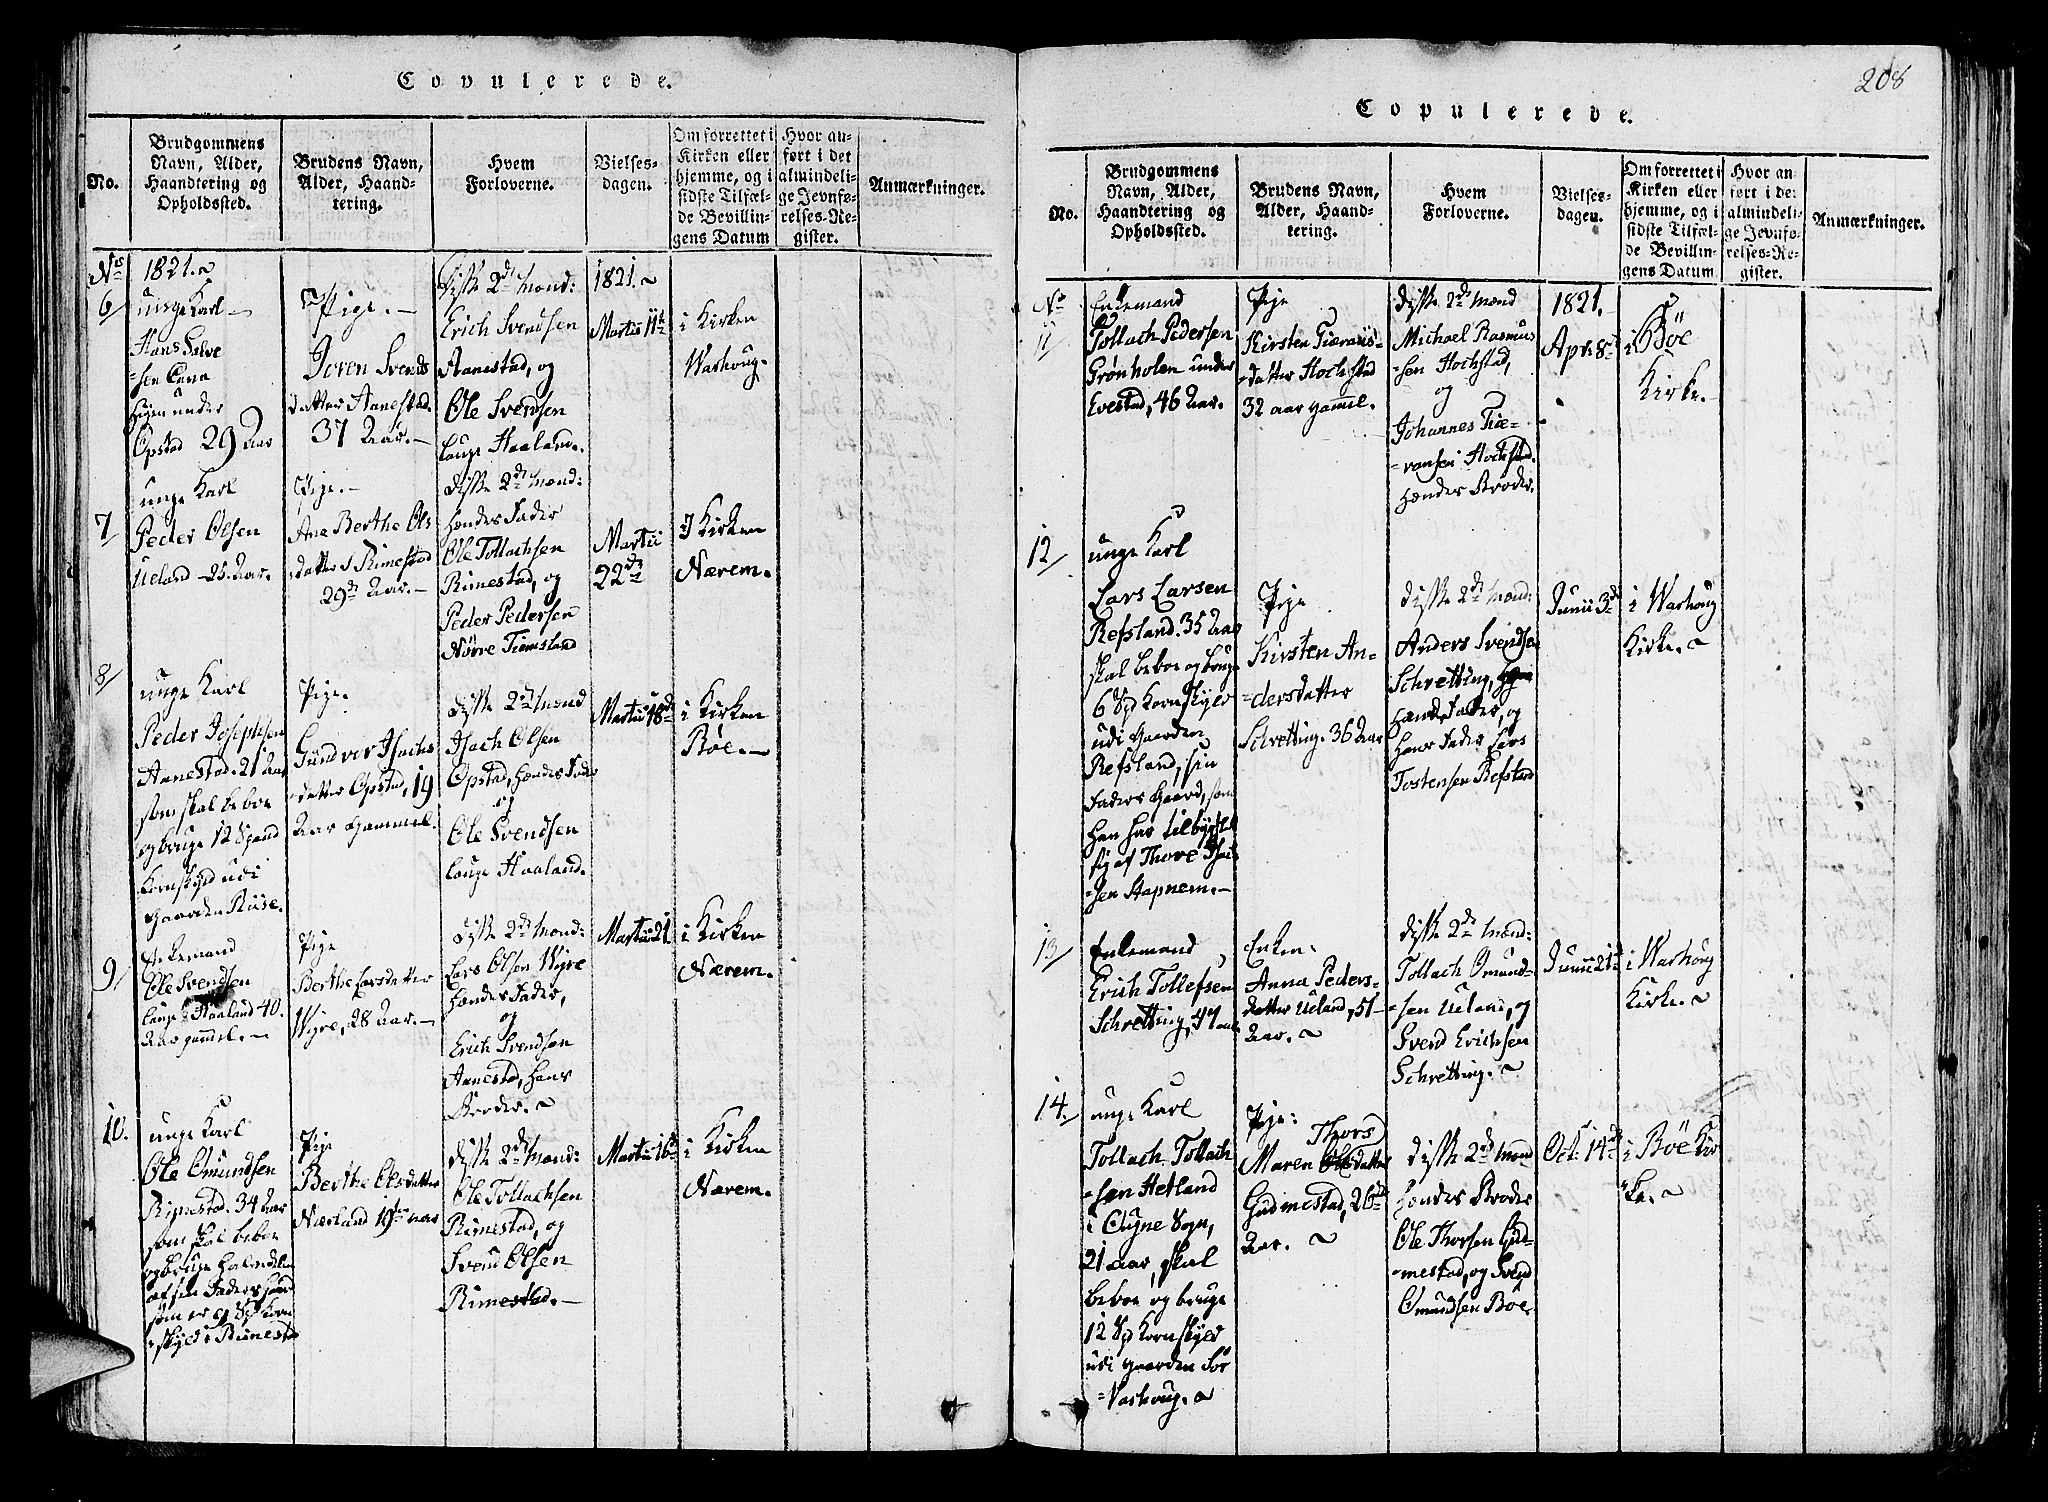 Copulerede.
No.
Brudgommens
Navn, Alder,
Haandtering og
Opholdssted.
Brudens Navn,
Alder, Haand-
tering.
Hvem
Forloverne.
Vielses-
dagen.
Om forrettet i
Kirken eller
hjemme, og i
sidste Tilfæl-
de Bevillin-
gens Datum
Hvor an-
ført i det
almindeli-
ge Jevnfø-
relses-Re-
gister.
Anmærkninger.
1821.
6/
unge Karl
Hans
Opstad 29 Aar
Pige.
Joren Svends
datter Aanestad.
37 Aar.
Disse 2de Mænd:
Erich Svendsen
Aanestad, og
Ole Svendsen
Lauge Haaland.
1821.
Martii 11te
i Kirken
Warhoug.
7
unge Karl
Peder Olsen
Ueland 25. Aar.
Pige.
Ane Berthe Ols
datter Rimestad
29de Aar.
Disse 2de Mænd:
hendes Fader
Ole Tollachsen
Rimestad, og
Peder Pedersen
Nörre Tiemsland
Martii
22de
I Kirken
Nærem.
8/
unge Karl
Peder Josephsen
Aanestad. 21 Aar
som skal beboe
og bruge 12 Spand
Kornskyld udi
Gaarden Riise.
Pige.
Gundvor Isachs
datter Opstad, 19
Aar Gammel.
Disse 2de Mænd
Isach Olsen
Opstad, hendes Fader
og
Ole Svendsen
Lauge Haaland.
Martii 18de
i Kirken
Böe.
9/
Enkemand
Ole Svendsen
Lauge Haaland 40.
Aar gammel.
Pige
Berthe Larsdatter
Wigre, 28 Aar.
Disse 2de Mænd:
Lars Olsen Wigre
hendes Fader,
og
Erich Svendsen
Aanestad, hans
Broder.
Martii 21.
i Kirken
Nærem.
10.
unge Karl
Ole Omundsen
Rimestad. 34 Aar
som skal beboe
og bruge halvdelen
af sin Faders
som er 9 Sp Korn
skyld i Rimestad
Pige
Berthe Olsdatter
Nærland 19 aar
Disse 2de Mænd:
Ole Tollachsen
Rimestad, og
Svend Olsen
Rimestad.
Martii 16de
i Kirken
Nærem.
208
Copulerede.
No.
Brudgommens
Navn, Alder,
Haandtering og
Opholdssted.
Brudens Navn,
Alder, Haand-
tering.
Hvem
Forloverne.
Vielses-
dagen.
Om forrettet i
Kirken eller
hjemme, og i
sidste Tilfæl-
de Bevillin-
gens Datum
Hvor an-
ført i det
almindeli-
ge Jevnfø-
relses-Re-
gister.
Anmærkninger.
No
11/
Enkemand
Tollach Pedersen
Grønholen under
Evestad, 46 Aar.
Pige
Kirsten Tiærans-
datter Hochstad
32 aar gammel.
Disse 2de Mænd
Michael Rasmus
sen Hochstad,
og
Johannes Tiæ-
ransen Hochstad.
hendes Broder.
1821.
Apr. 8de
i Böe
Kirke.
12/
unge Karl
Lars Larsen
Refsland. 35 Aar
skal beboe og bruge
6 Sp Kornskyld
udi Gaarden
Refsland, sin
Faders Gaard, som
han har tilbyttet
sig af Thore
-sen Hapnem.
Pige
Kirsten An-
dersdatter
Schretting. 36 Aar
Disse 2de Mænd:
Anders Svendsen
Schretting,
hendes Fader, og
hans Fader Lars
Tostensen Refsland
Junii 3de
i Warhoug
Kirke.
13/
Enkemand
Erich Tollefsen
Schretting, 47 aar
Enken:
Anna Peders-
datter Ueland, 51
Aar.
Disse 2de Mænd:
Tollach Omund-
sen Ueland, og
Svend Erichsen
Schretting.
Junii 21de
i Warhoug
Kirke.
14./
unge Karl
Tollach Tollach
-sen Hetland
i Ougne Sogn,
21 aar, skal
beboe og bruge
12 Sp Kornskyld
udi Gaarden Sør
-Varhoug.
Pige:
Thors
Maren Olsdatter
Gudmestad, 26de
Aar.
Disse 2de Mænd
hendes Broder
Ole Thorsen Gud-
mestad, og Svend
Omundsen Böe.
Oct. 14de
i Böe Kir
-ke.